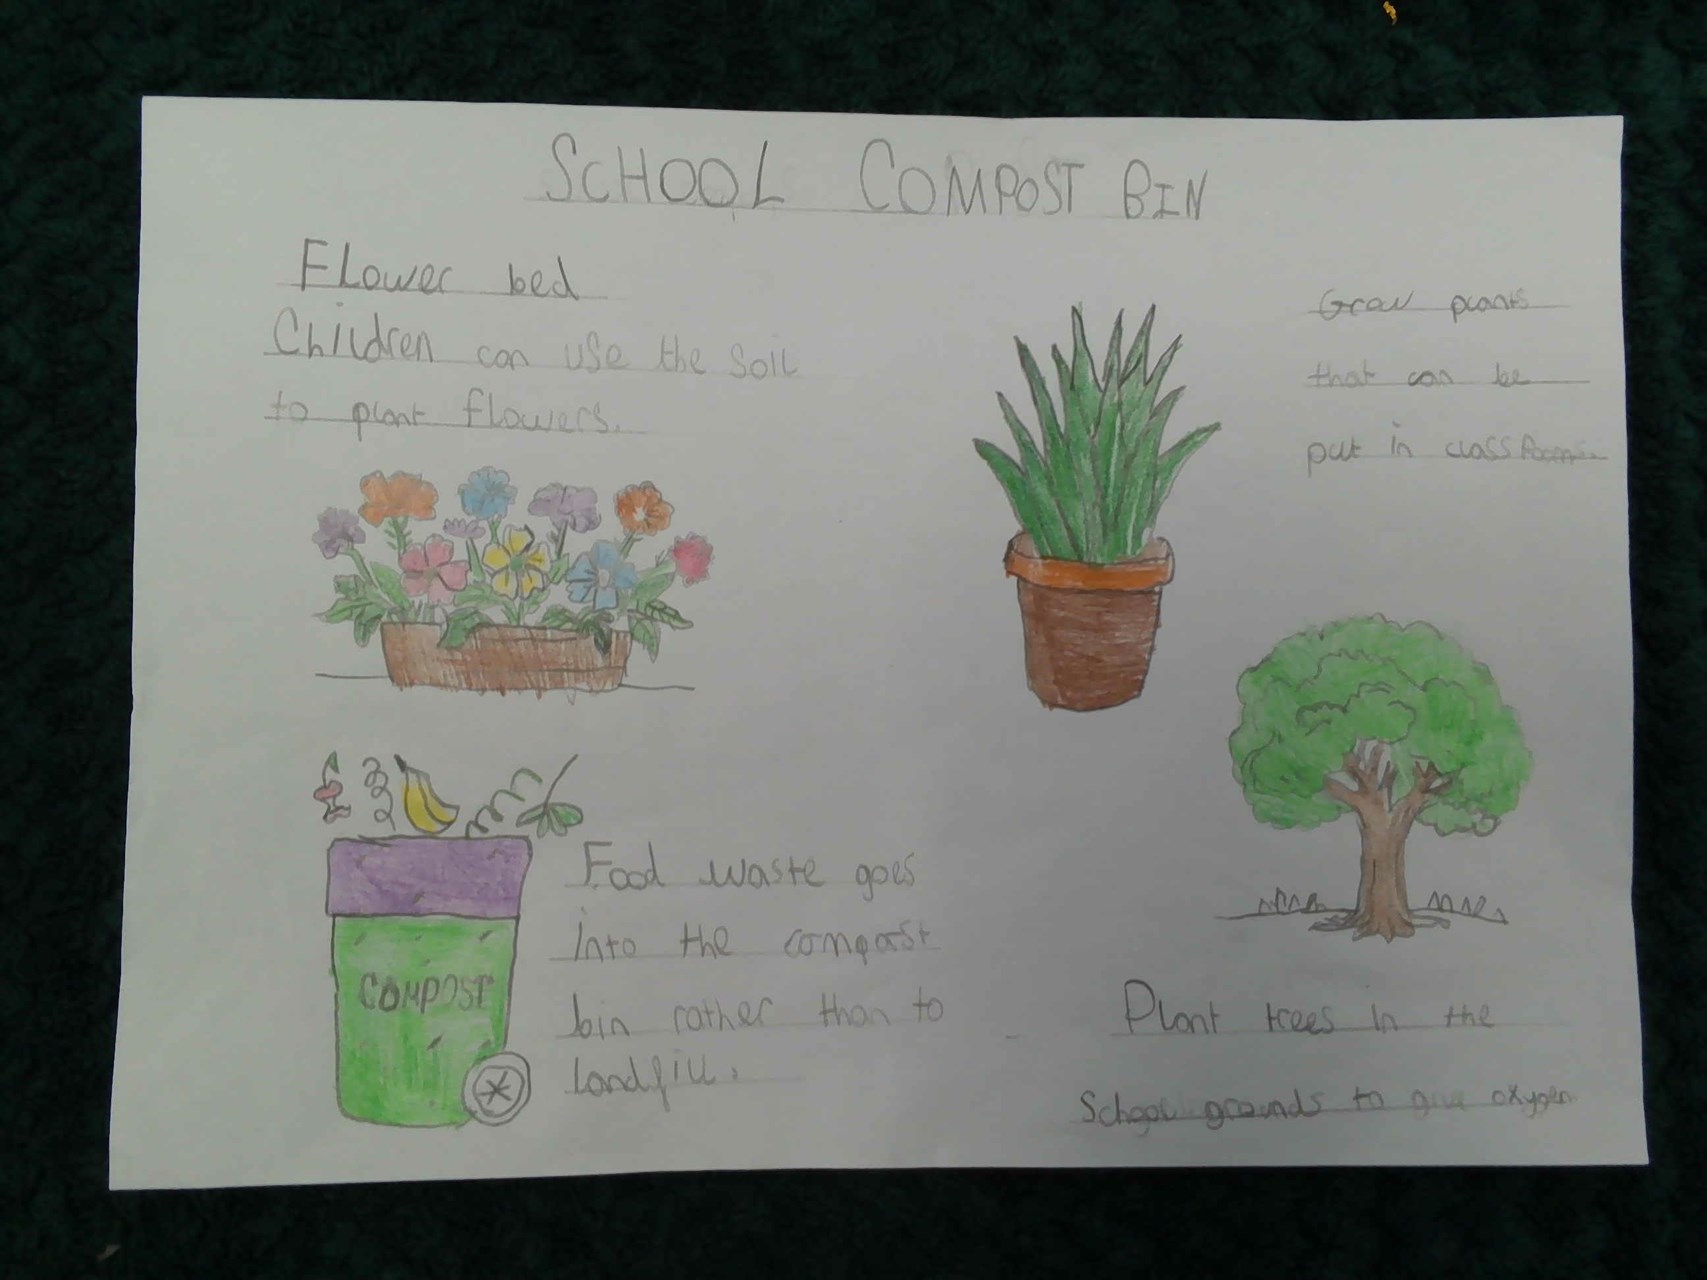 SCHOOL COMPOST BIN
Flower bed
Children can use the soil
to plant flowers.
Grow plants
that can be
put in classrooms.
COMPOST
Food waste goes
into the compost
bin rather than to
landfill.
Plant trees in the
School grounds to give oxygen